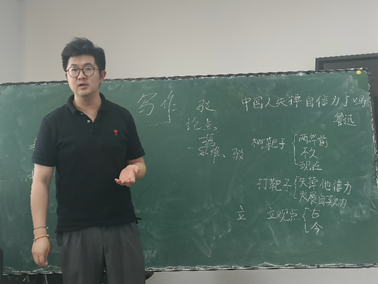 写作 驳
中国人失掉自信力了吗
鲁迅
论点
树靶子
两年前
不久
现在
打靶子
失掉他信力
发展自欺力
立
立观点
古
今